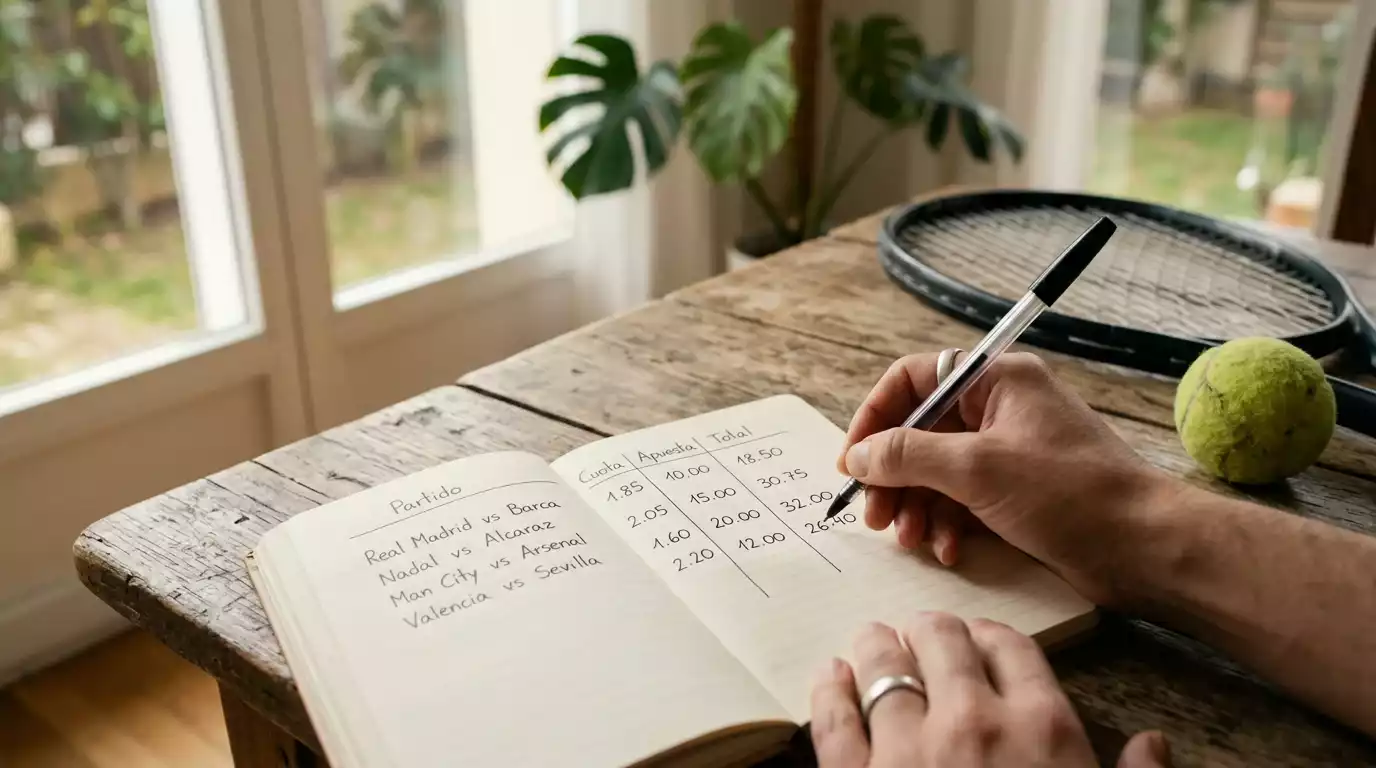 Partido
Real Madrid vs Barca
Nadal vs Alcaraz
Man City vs Arsenal
Valencia vs Sevilla
Cuota Apuesta Total
1.85 10.00 18.50
2.05 15.00 30.75
1.60 20.00 32.00
2.20 12.00 26.40